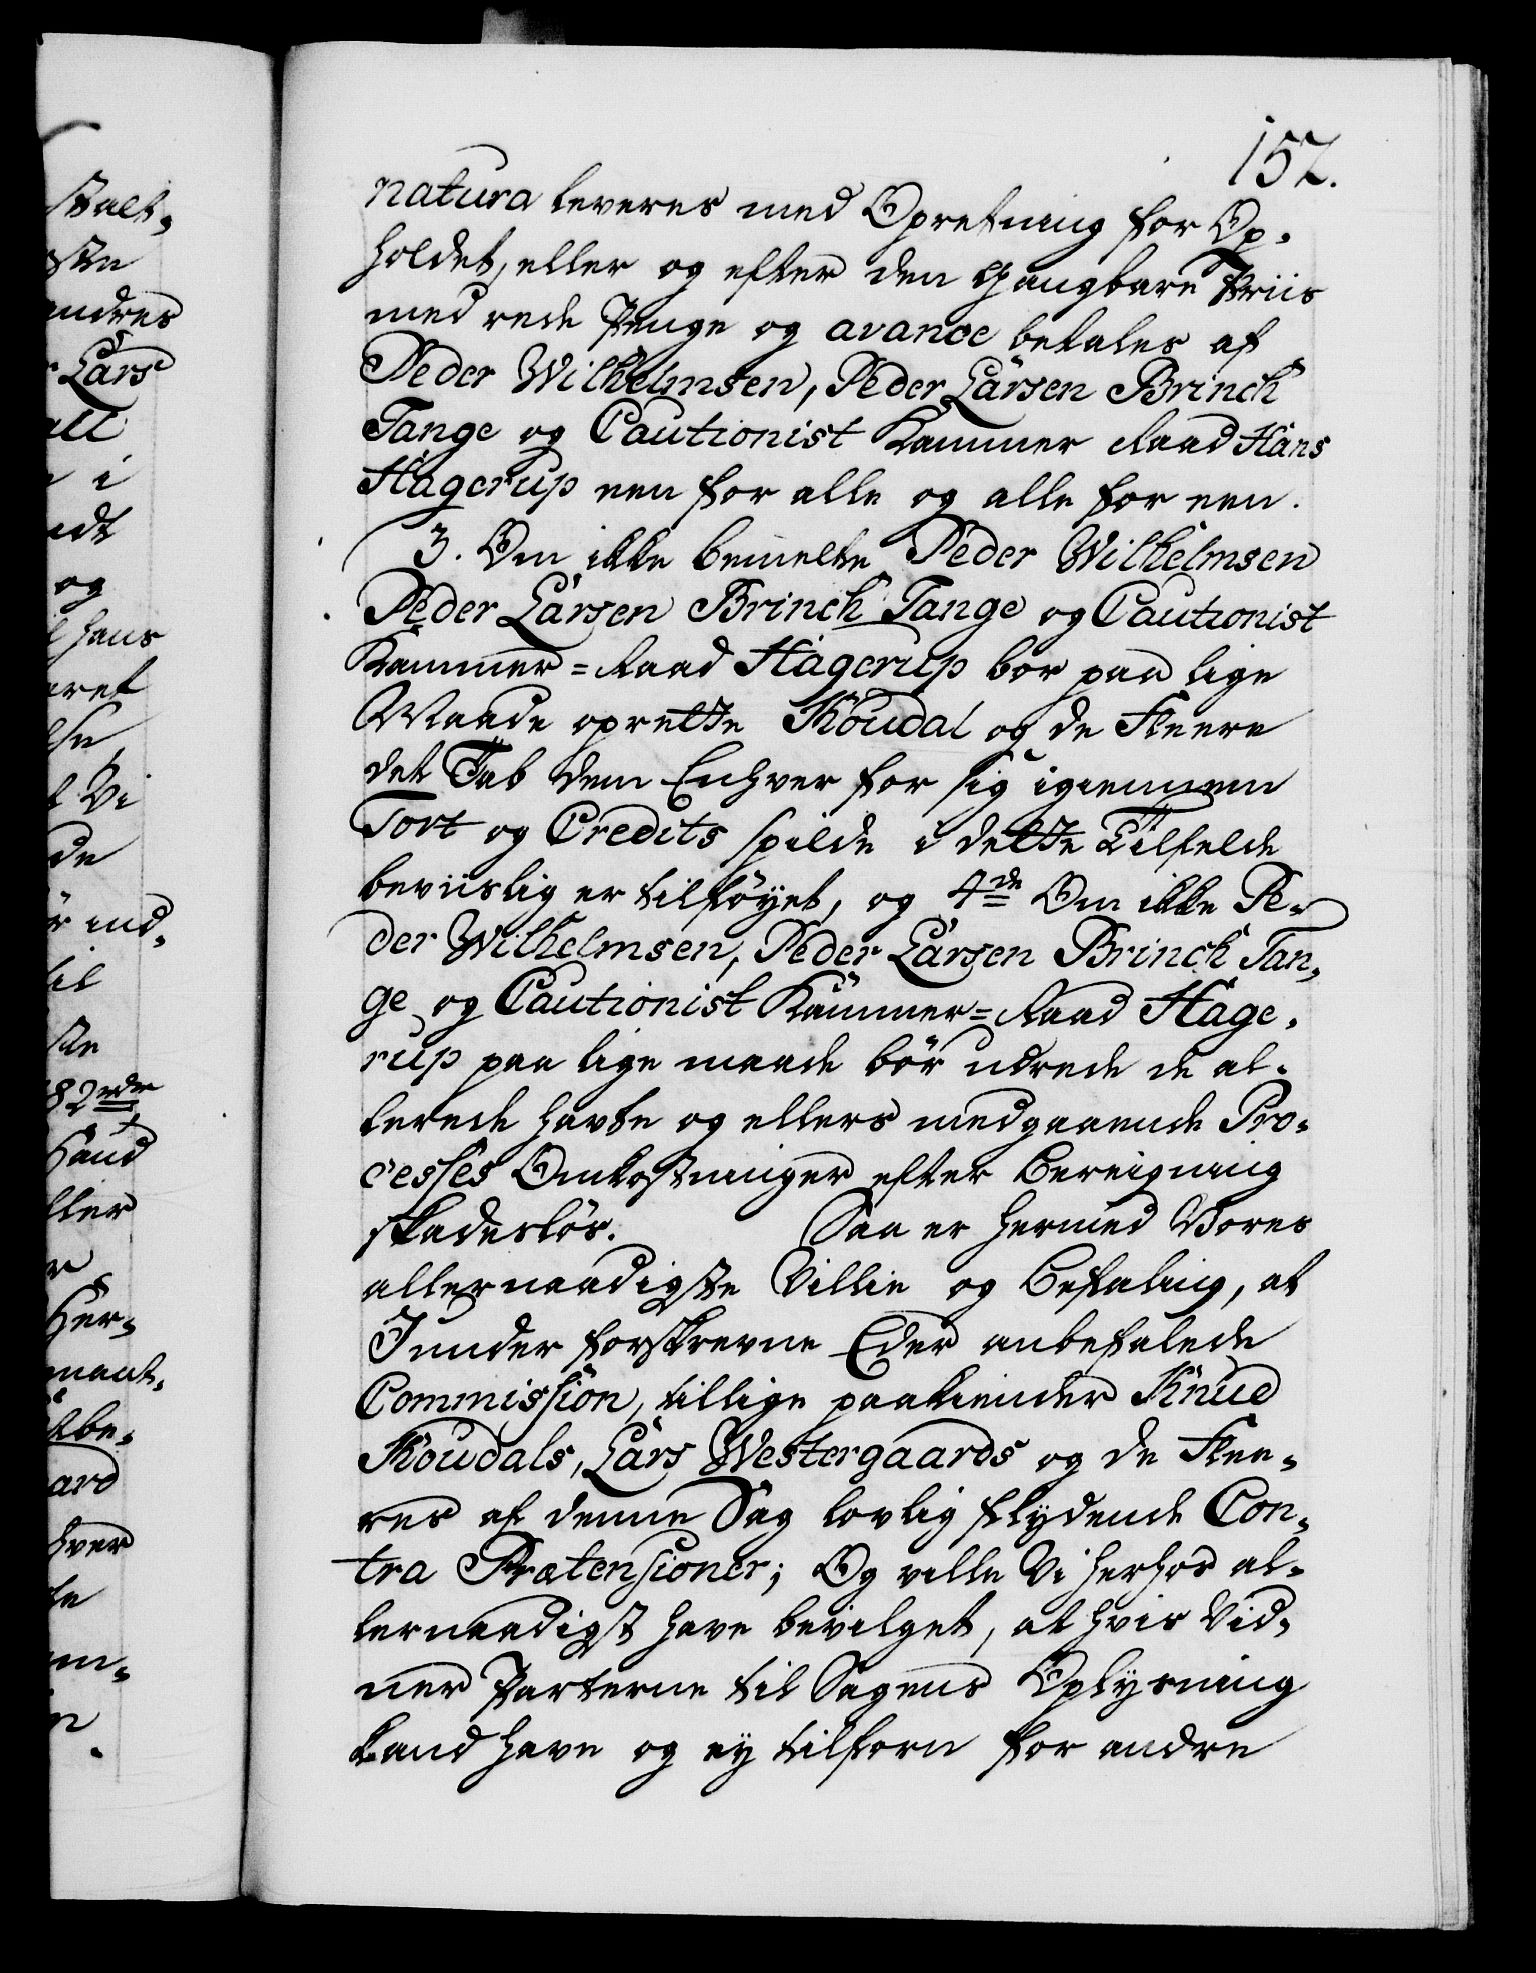 152.
natura leveres med Opretning for Op-
holdet, eller og efter den gangbare Priis
med rede Penge og avance betales af
Peder Wilhelmsen, Peder Larsen Brinch
Tange og Cautionist Kammer Raad Hans
Hagerup een for alle og alle for een.
3. Om ikke bemelte Peder Wilhelmsen
Peder Larsen Brinch Tange og Cautionist
Kammer=Raad Hagerup bør paa lige
Maade oprette Koudal og de Fleere
det Tab dem Enhver for sig igiennem
Tort og Credits spilde i dette Tilfelde
beviislig er tilføyet, og 4de Om ikke Pe-
der Wilhelmsen, Peder Larsen Brinch Tan-
ge og Cautionist Kammer=Raad Hage-
rup paa lige maade bør udrede de al-
lerede havte og ellers medgaaende Pro-
cesses Omkostninger efter Bereigning
skadesløs. Saa er hermed Vores
allernaadigste Villie og Befaling, at
I under forskrevne Eder anbefalede
Commission, tillige paakiender Knud
Koudals, Lars Westergaards og de Flee-
res af denne Sag lovlig flydende Con-
tra Prætensioner; Og ville Vi herhos al-
lernaadigst have bevilget, at hvis Vid-
ner Parterne til Sagens Oplysning
kand have og ey tilforn for andre